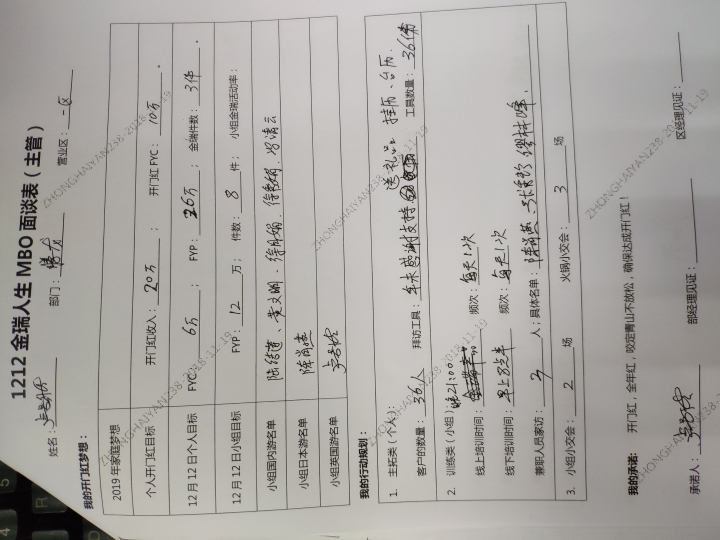 1212 金瑞人生 MBO 面谈表（主管）
姓名： 部门： 营业区：一区
我的开门红梦想：
2019 年家庭梦想
个人开门红目标 开门红收入：20万； 开门红 FYC：10万。
12 月 12 日个人目标 FYC：6万； FYP：26万； 金瑞件数：3件。
12 月 12 日小组目标 FYP：12万； 件数：8件； 小组金瑞活动率：
小组国内游名单
小组日本游名单 陈尚燕
小组英国游名单
我的行动规划：
1. 主拓类（个人）：
客户的数量：36人 拜访工具：年末感谢支持 送礼品、挂历、台历. 工具数量：36件
2. 训练类（小组）
线上培训时间：晚21:00 频次：每天1次
线下培训时间：早上 频次：每天1次
兼职人员家访：3人；具体名单：陈尚燕
3. 小组小交会：2场 火锅小交会：3场
我的承诺： 开门红，全年红，咬定青山不放松，确保达成开门红！
承诺人： 部经理见证： 区经理见证：
ZHONGHAIYAN238-2018-11-19